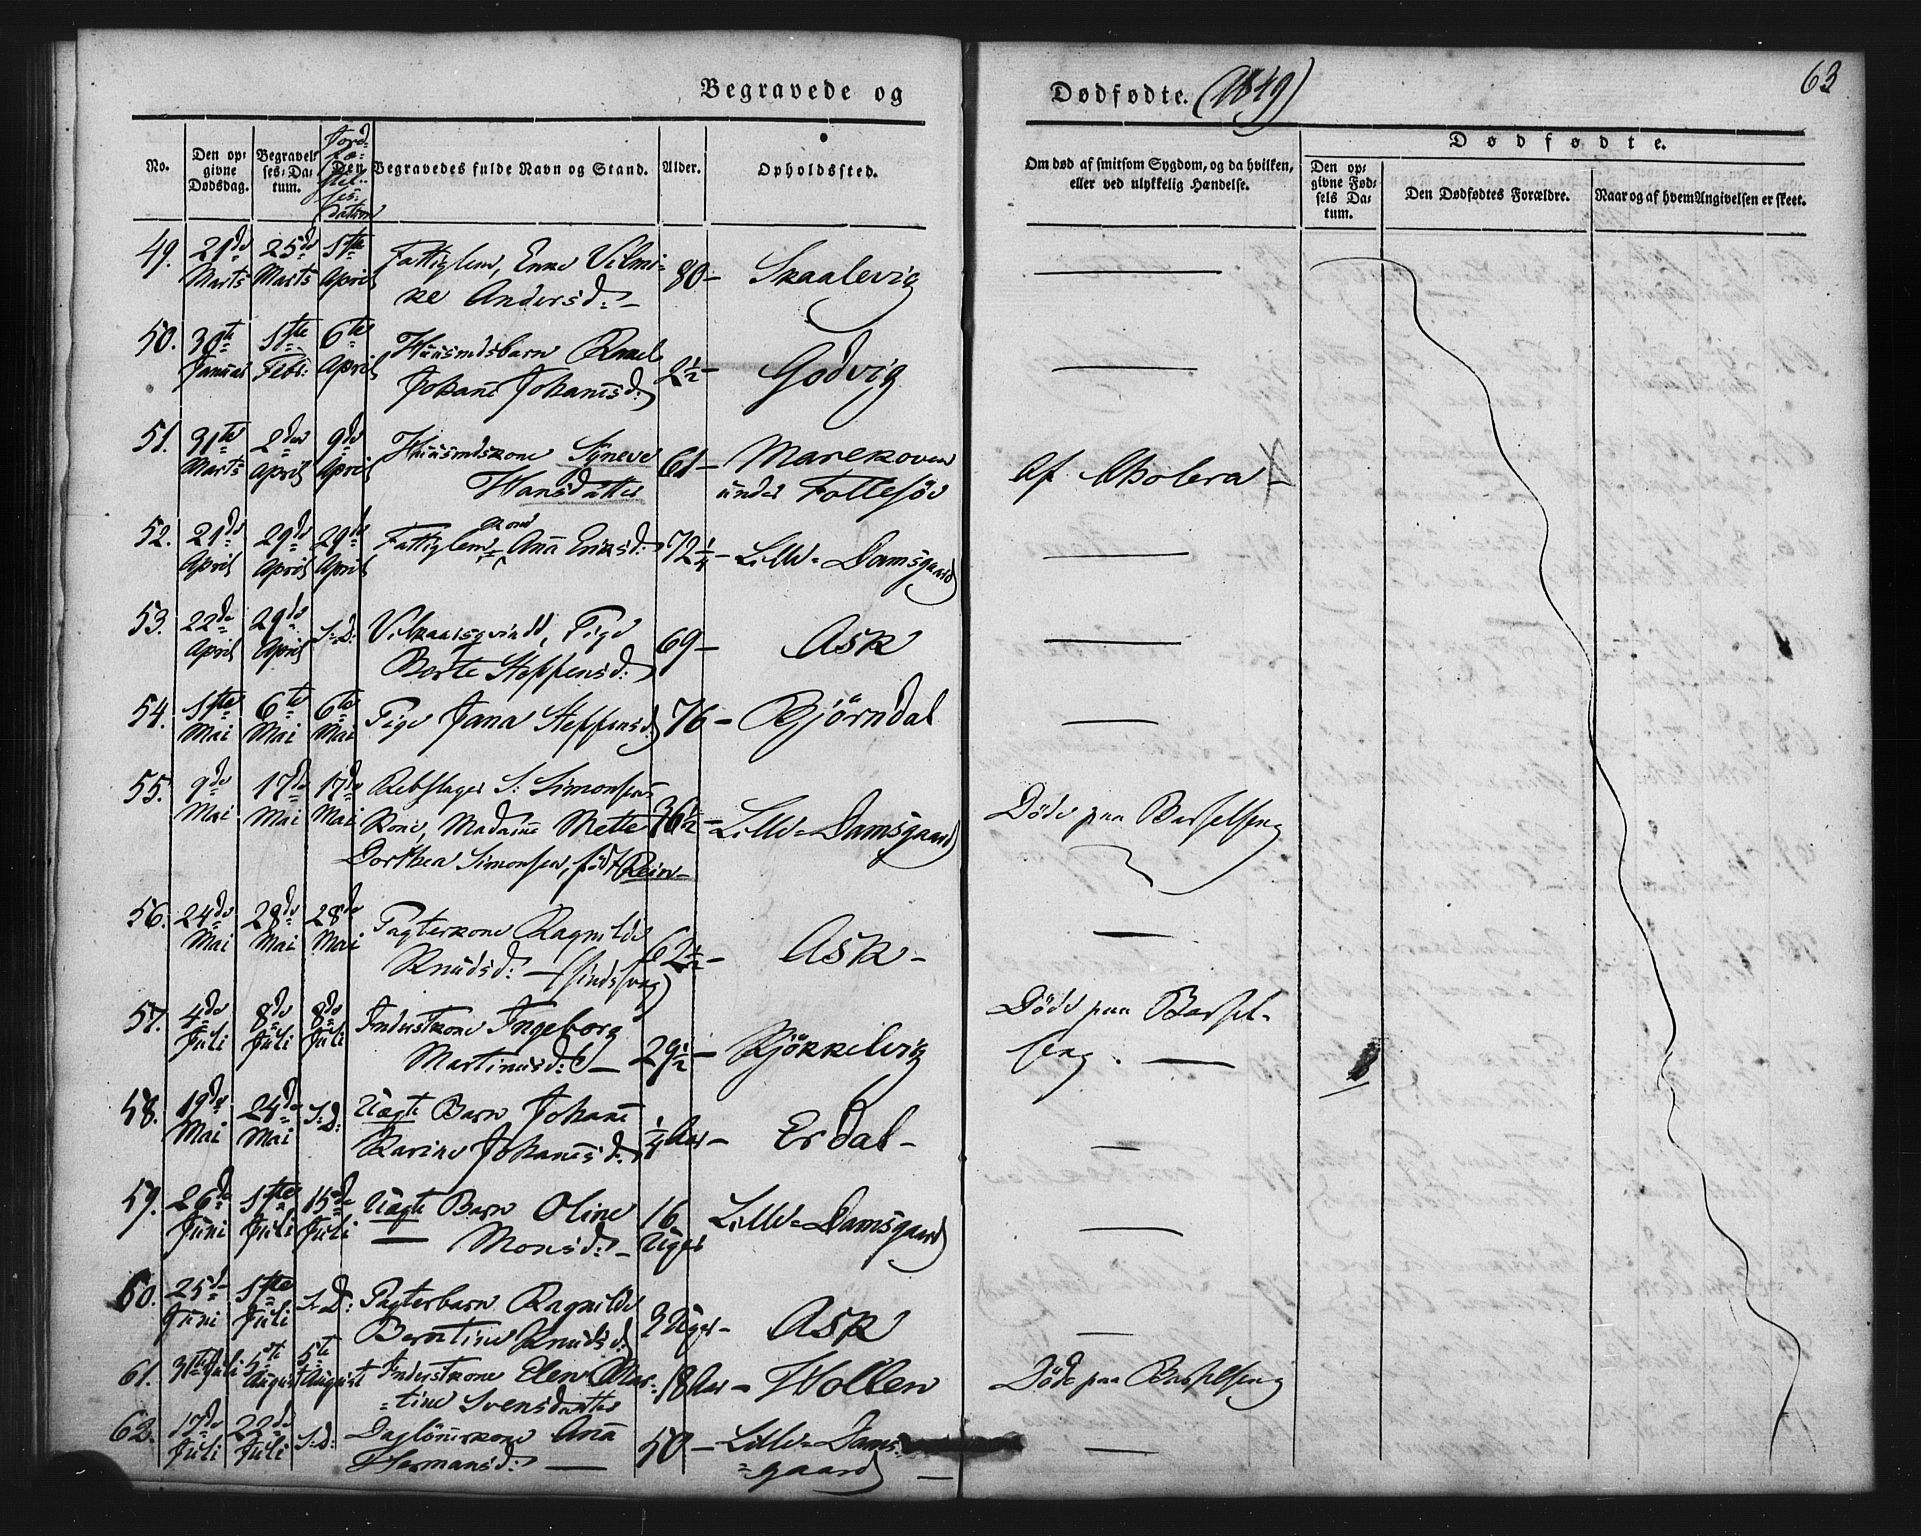 Begravede og
Dødfødte. (1849)
63
No.
Den op-
givne
Dødsdag.
Begravel-
ses-Da-
tum.
Jord-
fæ-
stel-
ses-
Datum
Begravedes fulde Navn og Stand.
Alder.
Opholdssted.
Om død af smitsom Sygdom, og da hvilken,
eller ved ulykkelig Hændelse.
Dødfødte.
Den op-
givne Fød-
sels Da-
tum.
Den Dødfødtes Forældre.
Naar og af hvem Angivelsen er skeet.
49. 21de Marts 25de Marts 1ste April Fattiglem, Enke Vilmi-
ke Andersd: 80 - Skaalevig
50. 30te Januar 1ste Febr: 6te April Huusmdsbarn Rakel
Johane Johanesd: 2½ - Godvig
51. 31te Marts 2den April 9de April Huusmdskone Syneve
Hansdatter 61 - Marekoven
under Follesøe Af Cholera -
52. 21de April 29de April 29de April Fattiglem kone Ana Eriksd: 72¼ - Lille-Damsgaard
53. 22de April 29de April S: D: Vilkaarsqvinde, Pige
Berte Steffensd: 69 - Ask
54. 1ste Mai 6te Mai 6te Mai Pige Jana Steffensd: 76 - Bjørndal
55. 9de Mai 17de Mai 17de Mai Rebslager S: Simonsens
Kone, Madame Mette
Dorthea Simonsen, født Rein - 36½ - Lille-Damsgaard Døde paa Barselseng
56. 24de Mai 28de Mai 28de Mai Pagterkone Ragnilde
Knudsd: - (sindssvag) 62½ - Ask -
57. 4de Juli 8de Juli 8de Juli Inderstkone Ingeborg
Martinusd: - 29½ - Kjøkkelvig Døde paa Barsel-
seng.
58. 19de Mai 24de Mai S: D: Uægte Barn Johane
Karine Johanesd: ¼ Aar - Erdal -
59. 26de Juni 1ste Juli 15de Juli Uægte Barn Oline
Monsd: - 16 Uger Lille-Damsgaard
60. 25de Juni 1ste Juli S: D: Pagterbarn Ragnilde
Berntine Knudsd: 3 Uger - Ask
61. 31te Juli 5te August 5te August Inderstkone Elen Mar-
tine Svensdatter 18 Aar - Wollen Døde paa Barselseng
62. 17de Juli 22de Juli S: D: Daglønerskone Ana
Hermansd: 50 - Lille-Dams-
gaard